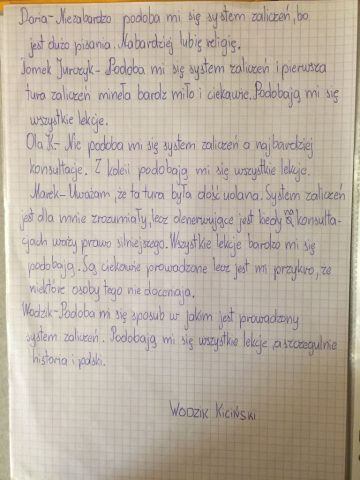 Daria-Niezabardzo podoba mi się system zaliczeń, bo
jest dużo pisania. Nabardziej lubię religię.
Tomek Jurczyk-Podoba mi się system zaliczeń i pierwsza
tura zaliczeń mineła bardz miło i ciekawie. Podobają mi się
wszystkie lekcje.
Ola K-Nie podoba mi się system zaliczeń a najbardziej
konsultacje. Z kolei podobają mi się wszystkie lekcje.
Marek-Uważam, że ta tura była dość udana. System zaliczeń
jest dla mnie zrozumiały, lecz denerwujące jest kiedy na konsulta-
cjach waży prawo silniejszego. Wszystkie lekcje bardzo mi się
podobają. Są ciekawie prowadzone lecz jest mi przykro, że
niektóre osoby tego nie doceniają.
Wodzik-Podoba mi się sposub w jakim jest prowadzony
system zaliczeń. Podobają mi się wszystkie lekcje, a szczegulnie
historia i polski.
WODZIK KICIŃSKI